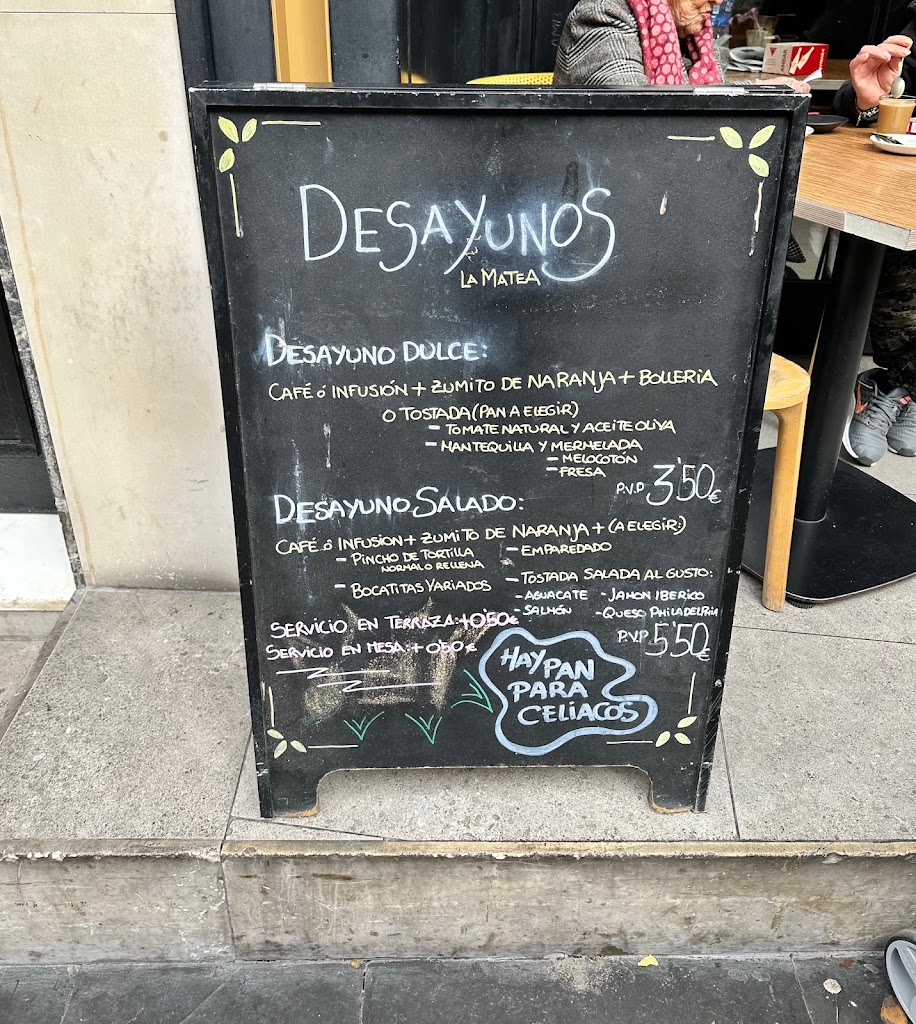 DESAYUNOS
LA MATEA
DESAYUNO DULCE:
CAFÉ ó INFUSIÓN + ZUMITO DE NARANJA + BOLLERIA
O TOSTADA (PAN A ELEGIR)
- TOMATE NATURAL Y ACEITE OLIVA
- MANTEQUILLA Y MERMELADA
- MELOCOTÓN
- FRESA
P.V.P 3'50€
DESAYUNO SALADO:
CAFÉ ó INFUSION + ZUMITO DE NARANJA + (A ELEGIR:)
- PINCHO DE TORTILLA
NORMAL O RELLENA
- BOCATITAS VARIADOS
- EMPAREDADO
- TOSTADA SALADA AL GUSTO:
- AGUACATE - JAMON IBERICO
- SALMÓN - QUESO PHILADELPHIA
P.V.P 5'50€
SERVICIO EN TERRAZA: +0'50€
SERVICIO EN MESA: +0'50€
HAY PAN
PARA
CELIACOS